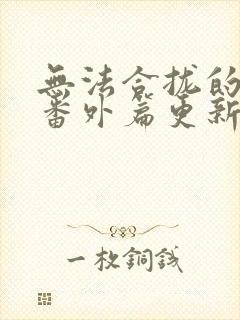 無法合拢的
番外篇更新
一枚銅銭